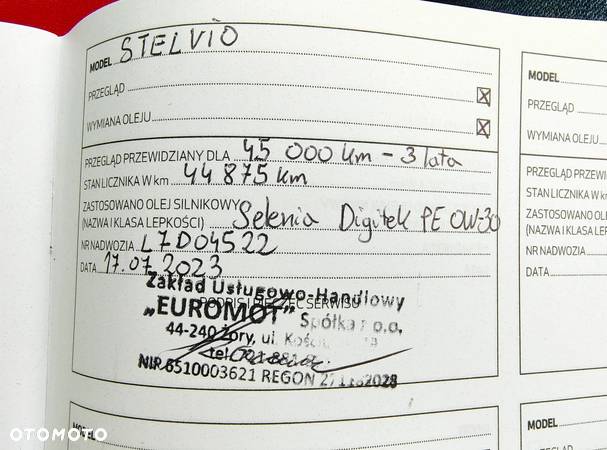 MODEL STELVIO
PRZEGLĄD
WYMIANA OLEJU
PRZEGLĄD PRZEWIDZIANY DLA 45 000 km - 3 lata
STAN LICZNIKA W km 44 875 km
ZASTOSOWANO OLEJ SILNIKOWY
(NAZWA I KLASA LEPKOŚCI) Selenia Digitek PE 0W-30
NR NADWOZIA L7D04522
DATA 17.07.2023
Zakład Usługowo-Handlowy
PODPIS I PIECZĘĆ SERWISU
„EUROMOT" Spółka z o.o.
44-240 Żory, ul.
tel.
NIP 6510003621 REGON
MODEL
MODEL
PRZEGLĄD
WYMIANA OLEJU
PRZEGLĄD PRZEWI
STAN LICZNIKA W km
ZASTOSOWANO OL
(NAZWA I KLASA LEP
NR NADWOZIA
DATA
MODEL
OTOMOTO